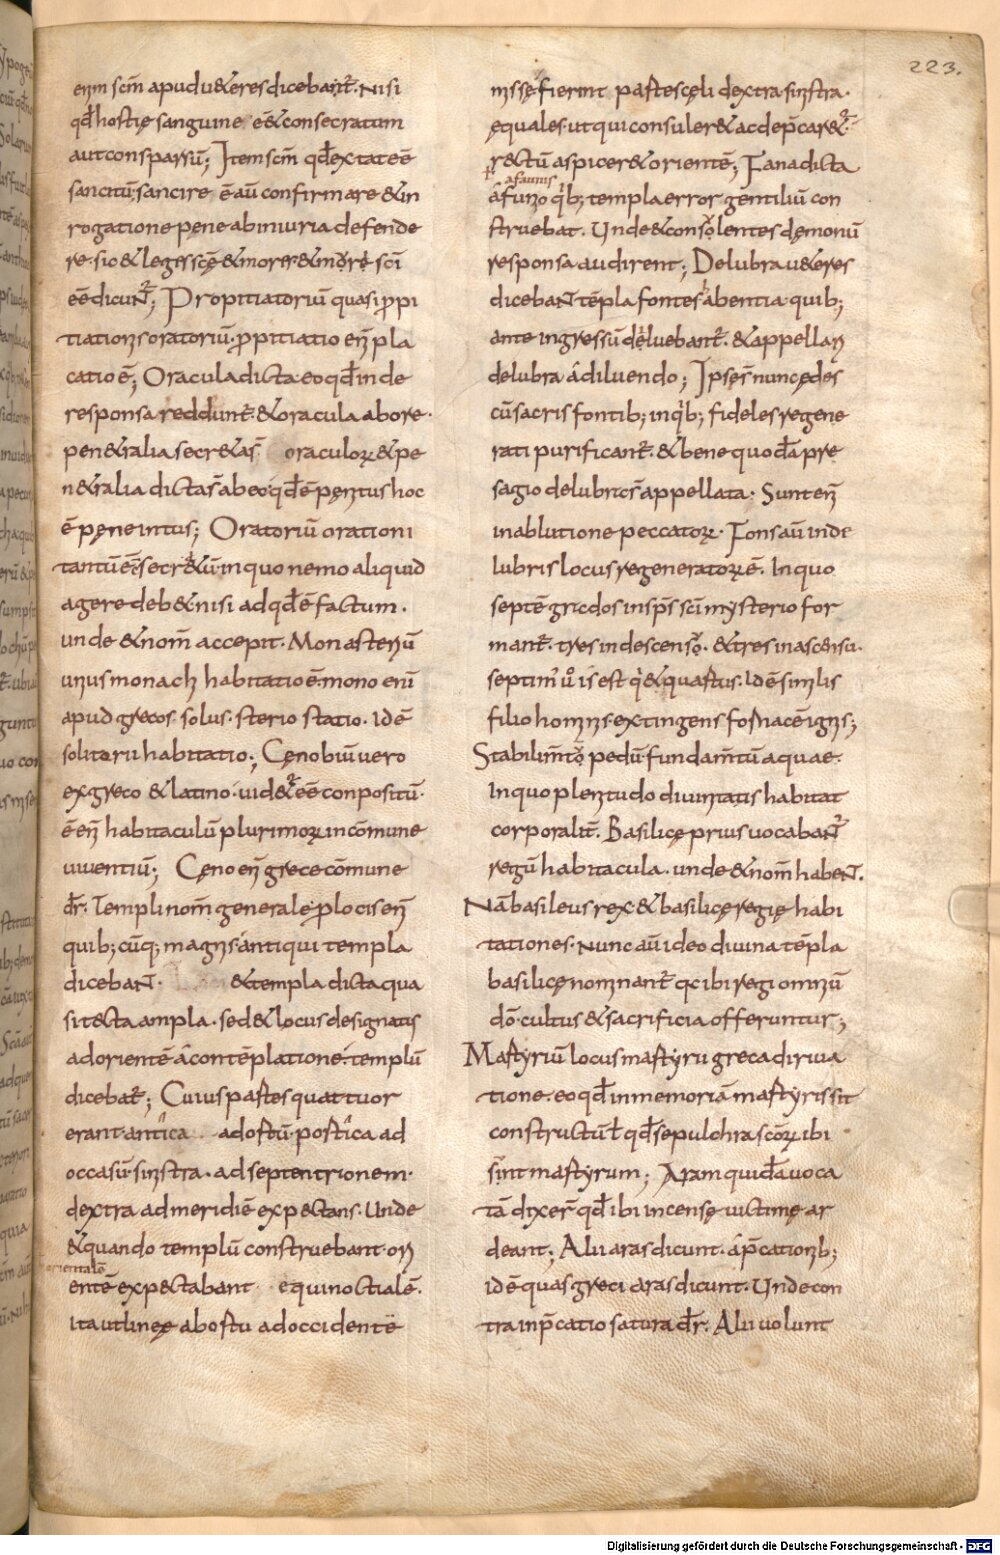 223.
enim scm̄ apud u&eres dicebant᷑. Nisi
qđ hostię sanguine ēēt & consecratum
aut consparsū; Item scm̄ qđ extat eē
sancitū; sancire ē aū confirmare & in
rogatione pene ab iniuria defende
re. sic & leges scę & mores & mōrō scī
eē dicunt᷑; Propitiatoriū quasi ꝓpi
tiationis oratoriū. ꝓpitiatio eni᷑ pla
catio ē; Oracula dicta eo qđ inde
responsa reddunt᷑. & oracula ab ore.
pen&ralia secr&a s̄ oraculoꝝ & pe
n&ralia dicta s̄ ab eo qđ ē penitus hoc
ē pęne intus; Oratoriū orationi
tantū ē᷑ secr&ū in quo nemo aliquid
agere deb& nisi ad qđ ē factum.
unde & nom̄ accepit. Monasteriū
unus monachi habitatio ē. mono enī
apud grecos. solus. sterio statio. id ē
solitarii habitatio; Cęnobiū uero
ex greco & latino uid&᷑ eē conpositū.
ē eni᷑ habitaculū plurimoꝝ in cōmune
uiuentiū; Cęno eni᷑ grece cōmune
dr̄. Templi nom̄ generale. ꝓ locis eni᷑
quib; cūq; magnis antiqui templa
dicebant. & templa dicta qua
si tecta ampla. sed & locus designatus
ad orientē a contēplatione templū
dicebat᷑; Cuius partes quattuor
erant antica ad ortū. postica ad
occasū. sinistra. ad septentrionem.
dextra ad meridiē expectans. Unde
& quando templū construebant ori
orientalē
entē expectabant ęquinoctialē.
ita ut linę ab ortu ad occidentē
missę fierint partes cęli dextra sinistra.
ęquales. ut qui consuler& ac dep̄car&᷑
r&ctū aspicer& orientē; Fana dicta
a faunis
a funo q'b; templa error gentiliū con
struebat. Unde & consolentes dęmonū
responsa audirent; Delubra u&eres
dicebant tēpla fontes abentia quib;
ante ingressū deluebant᷑. & appellari
delubra a diluendo; Ipse s̄ nunc ędes
cū sacris fontib; in q'b; fideles regene
rati purificant᷑. & bene quodā pre
sagio delubri s̄ appellata. Sunt eni᷑
in ablutione peccatoꝝ. Fons aū in de
lubris locus regeneratoꝝ ē. In quo
septē gradus in sps̄ sci mysterio for
mant᷑. tres in descenso. & tres in ascensu.
septim' u͛o is est q' & quartus. id ē similis
filio hominis. extingens fornacē ignis;
Stabilim̄tō pedū. fundam̄tū aquae.
In quo plenitudo diuinitatis habitat
corporalit᷑. Basilicę prius uocabant᷑
regū habitacula. unde & nom̄ habent.
Nā basileus rex & basilicę regię habi
tationes. Nunc aū ideo diuina tēpla
basilicę nominant᷑ qa ibi regi omniū
dō. cultus & sacrificia offeruntur;
Martyriū locus martyrū greca diriua
tione. eo qđ in memoriā martyris sit
constructū ł qđ sepulchra scōꝝ ibi
sint martyrum; Aram quidā uoca
tā dixer̄ qđ ibi incensę uictimę ar
deant; Alii aras dicunt. a p̄cationib;
id ē quas greci aras dicunt. Unde con
tra inp̄catio satura dr̄. Alii uolunt
Digitalisierung gefördert durch die Deutsche Forschungsgemeinschaft - DFG